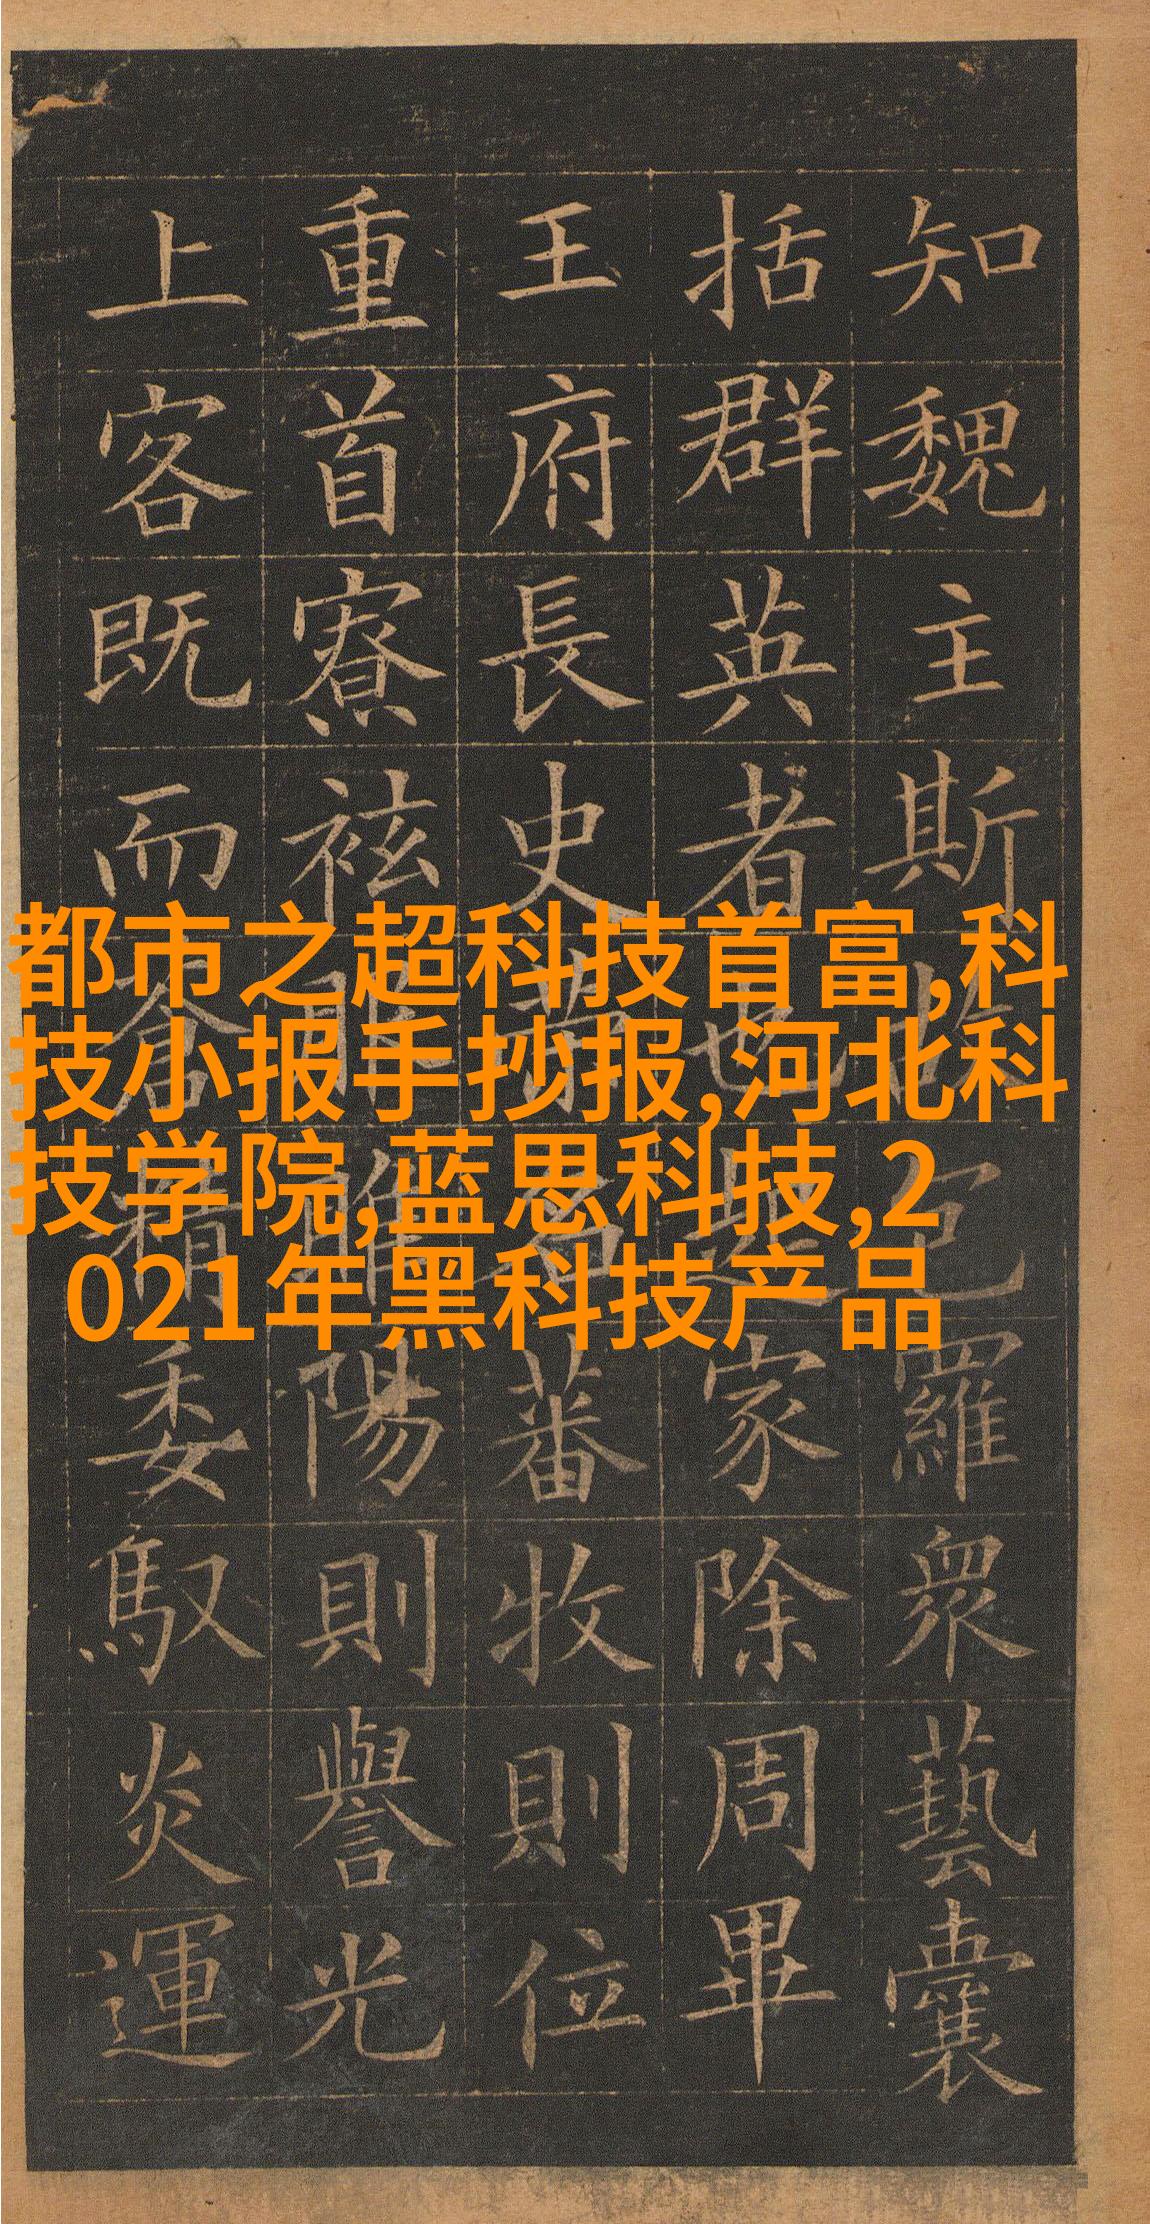 知魏主斯包羅眾藝囊
括群英者也起家除周畢
王府長史蕃牧則位
重首寮袨陽則譽光
上客既而蒼精委馭炎運
都市之超科技首富,科
技小报手抄报,河北科
技学院,蓝思科技,2
021年黑科技产品